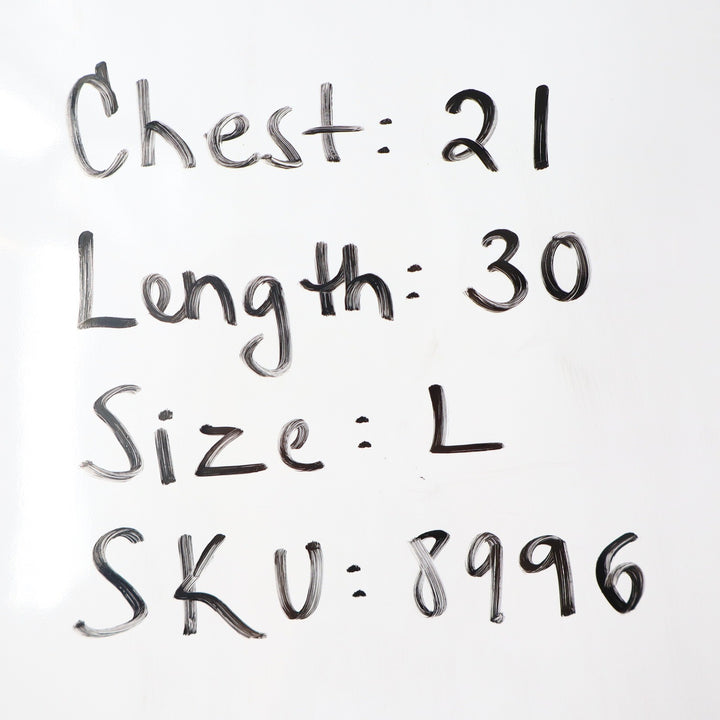 Chest: 21
Length: 30
Size: L
SKU: 8996